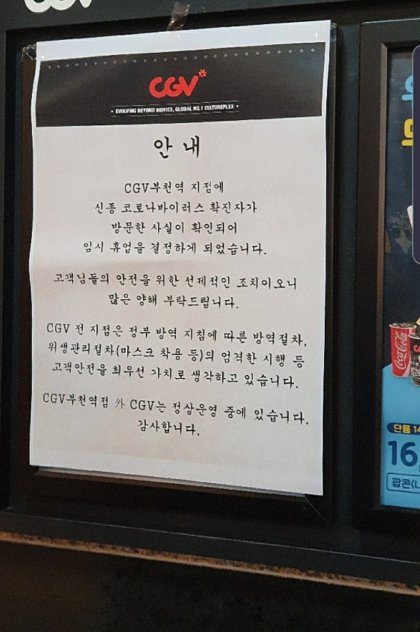 CGV
CGV
EVOLVING BEYOND MOVIES, GLOBAL NO.1 CULTUREPLEX
안내
CGV부천역 지점에
신종 코로나바이러스 확진자가
방문한 사실이 확인되어
임시 휴업을 결정하게 되었습니다.
고객님들의 안전을 위한 선제적인 조치이오니
많은 양해 부탁드립니다.
CGV 전 지점은 정부 방역 지침에 따른 방역절차,
위생관리절차(마스크 착용 등)의 엄격한 시행 등
고객안전을 최우선 가치로 생각하고 있습니다.
CGV부천역점 外 CGV는 정상운영 중에 있습니다.
감사합니다.
Coca-Cola
단품 14
16,
팝콘(L